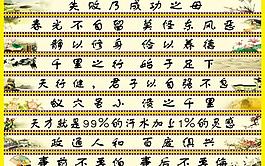 失败乃成功之母
春光不自留 莫怪东风恶
静以修身 俭以养德
千里之行 始于足下
天行健,君子以自强不息
蚁穴虽小 溃之千里
天才就是99%的汗水加上1%的灵感
政通人和 百废俱兴
事前不妥怕 事后不妥悔